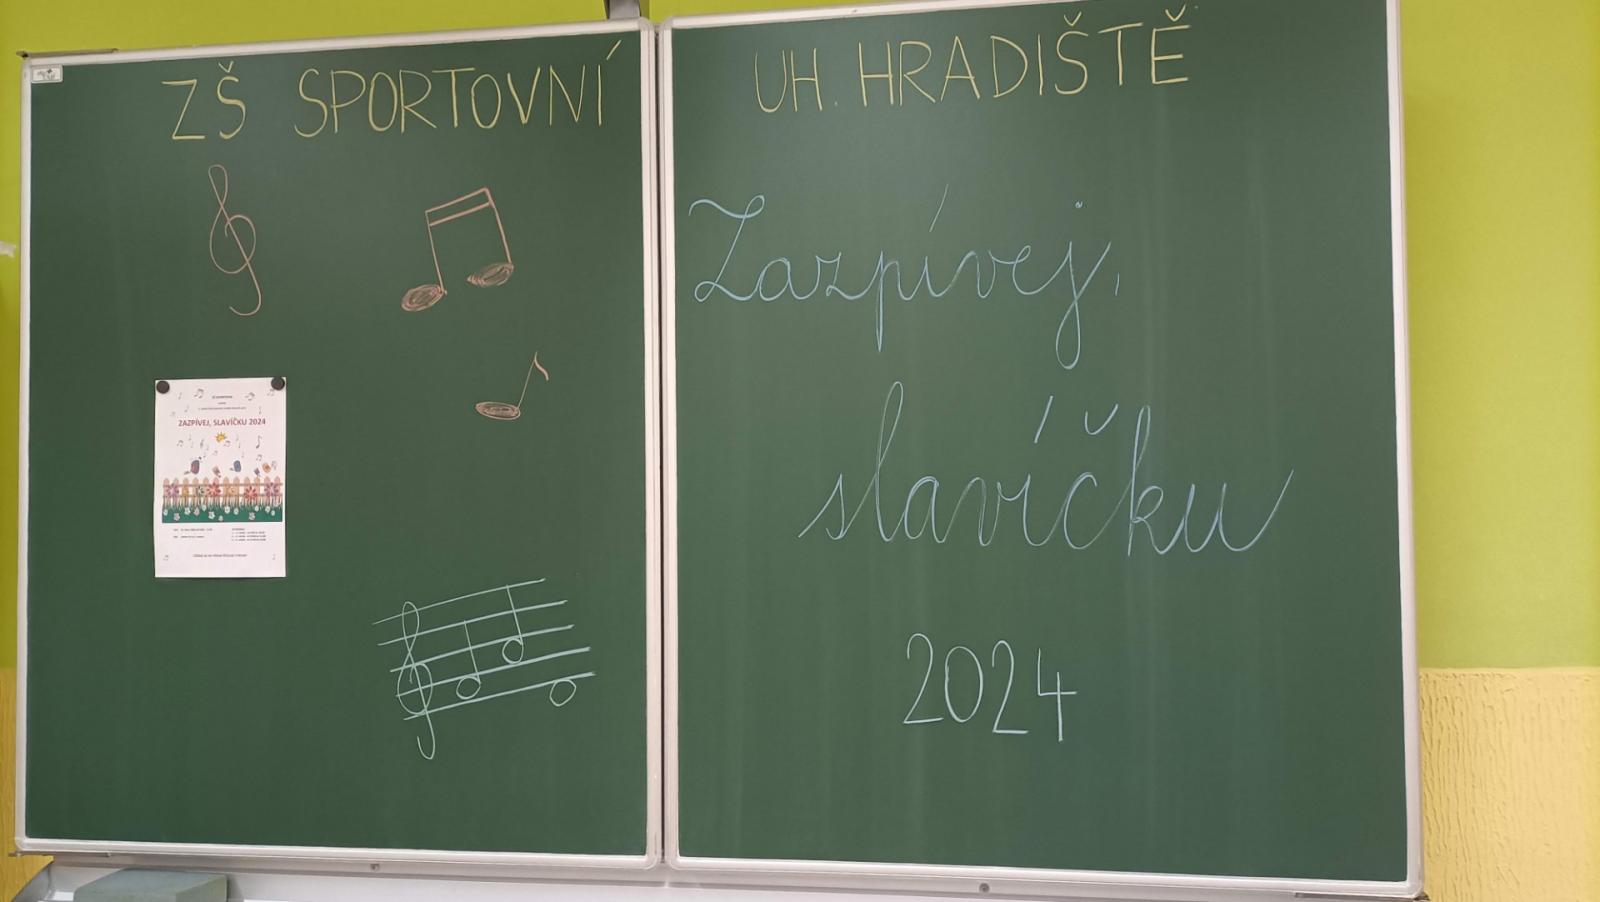 ZŠ SPORTOVNÍ UH. HRADIŠTĚ
Zazpívej,
slavíčku
2024
ZAZPÍVEJ, SLAVÍČKU 2024